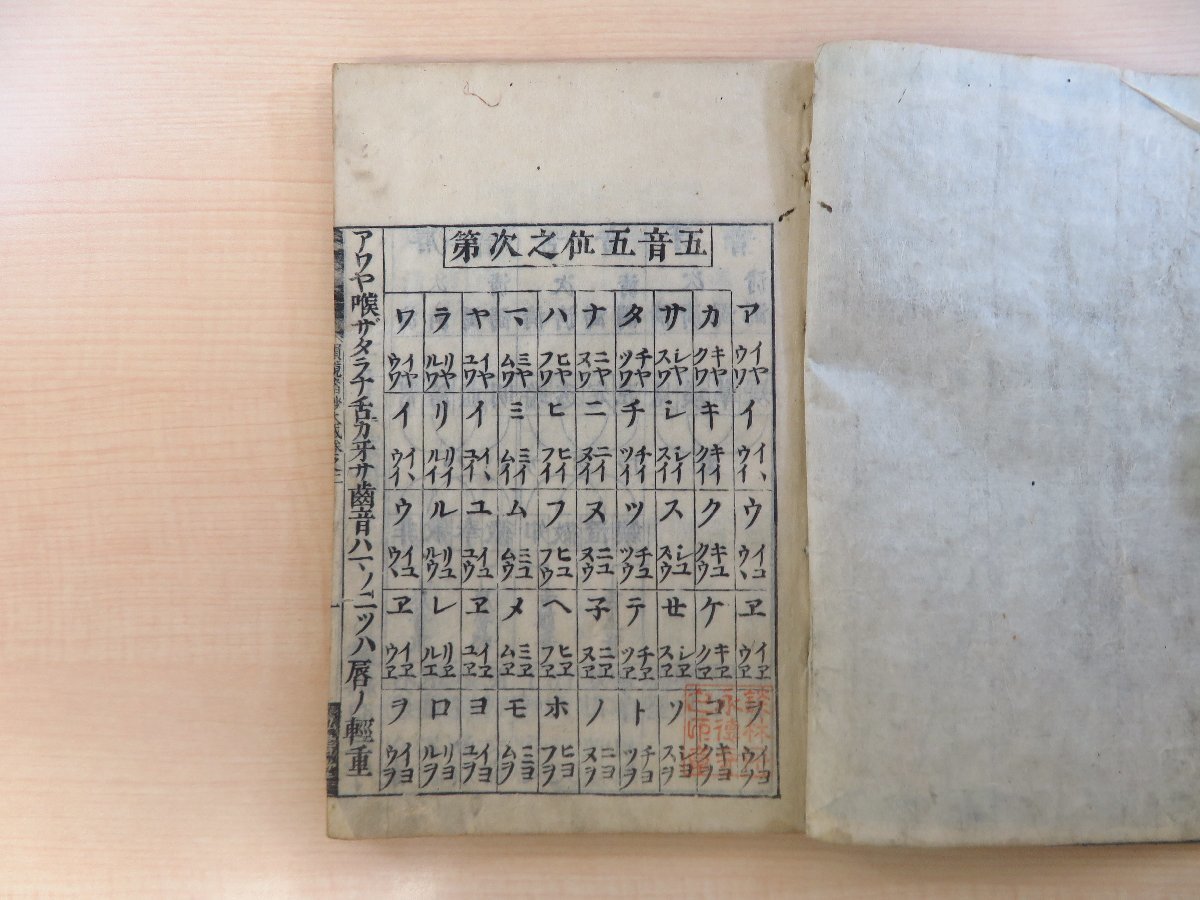 五音五位之次第
ア カ サ タ ナ ハ マ ヤ ラ ワ
イヤ キヤ シヤ チヤ ニヤ ヒヤ ミヤ イヤ リヤ イヤ
ウワ クワ スワ ツワ ヌワ フワ ムワ ユワ ルワ ウワ
イ キ シ チ ニ ヒ ミ イ リ イ
イヽ キイ シイ チイ ニイ ヒイ ミイ イヽ リイ イヽ
ウイ クイ スイ ツイ ヌイ フイ ムイ ユイ ルイ ウイ
ウ ク ス ツ ヌ フ ム ユ ル ウ
イユ キユ シユ チユ ニユ ヒユ ミユ イユ リユ イユ
ウヽ クウ スウ ツウ ヌウ フウ ムウ ユウ ルウ ウヽ
ヱ ケ セ テ 子 ヘ メ ヱ レ ヱ
イヱ キヱ シヱ チヱ ニヱ ヒヱ ミヱ イヱ リヱ イヱ
ウヱ クヱ スヱ ツヱ ヌヱ フヱ ムヱ ユヱ ルエ ウヱ
ヲ コ ソ ト ノ ホ モ ヨ ロ ヲ
イヨ キヨ シヨ チヨ ニヨ ヒヨ ミヨ イヨ リヨ イヨ
ウヲ クヲ スヲ ツヲ ヌヲ フヲ ムヲ ユヲ ルヲ ウヲ
アワヤ喉サタラナ舌カ牙サ齒音ハマノ二ツハ唇ノ輕重